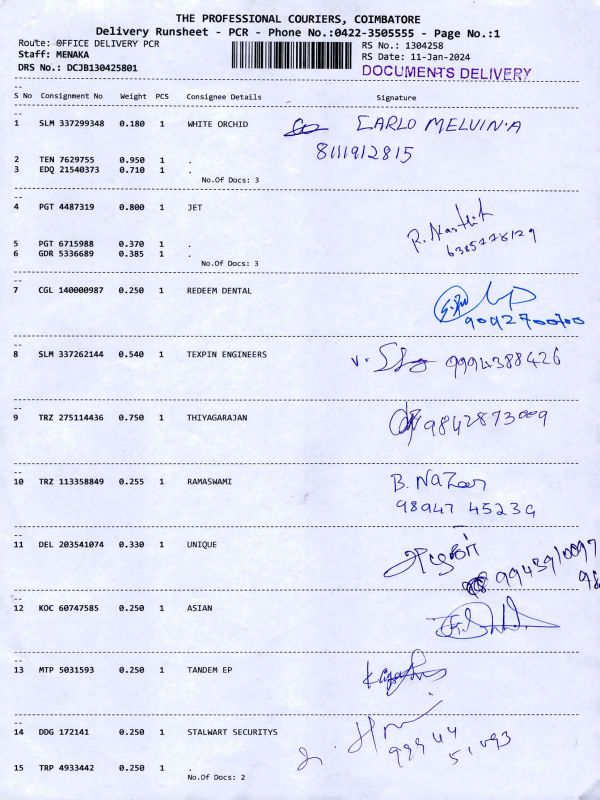 THE PROFESSIONAL COURIERS, COIMBATORE
Delivery Runsheet - PCR - Phone No.:0422-3505555 - Page No.:1
Route: OFFICE DELIVERY PCR
RS No.: 1304258
Staff: MENAKA
RS Date: 11-Jan-2024
DRS No.: DCJB130425801
DOCUMENTS DELIVERY
S No Consignment No Weight PCS Consignee Details Signature
1 SLM 337299348 0.180 1 WHITE ORCHID CARLO MELVIN.A
8111912815
2 TEN 7629755 0.950 1 .
3 EDQ 21540373 0.710 1 .
No.Of Docs: 3
4 PGT 4487319 0.800 1 JET
R.
5 PGT 6715988 0.370 1 .
6 GDR 5336689 0.385 1 .
No.Of Docs: 3
7 CGL 140000987 0.250 1 REDEEM DENTAL
9092700700
8 SLM 337262144 0.540 1 TEXPIN ENGINEERS V. 9994388426
9 TRZ 275114436 0.750 1 THIYAGARAJAN 9842873009
10 TRZ 113358849 0.255 1 RAMASWAMI B.
98947 45239
11 DEL 203541074 0.330 1 UNIQUE
12 KOC 60747585 0.250 1 ASIAN
13 MTP 5031593 0.250 1 TANDEM EP
14 DDG 172141 0.250 1 STALWART SECURITYS
99944
15 TRP 4933442 0.250 1 .
No.Of Docs: 2